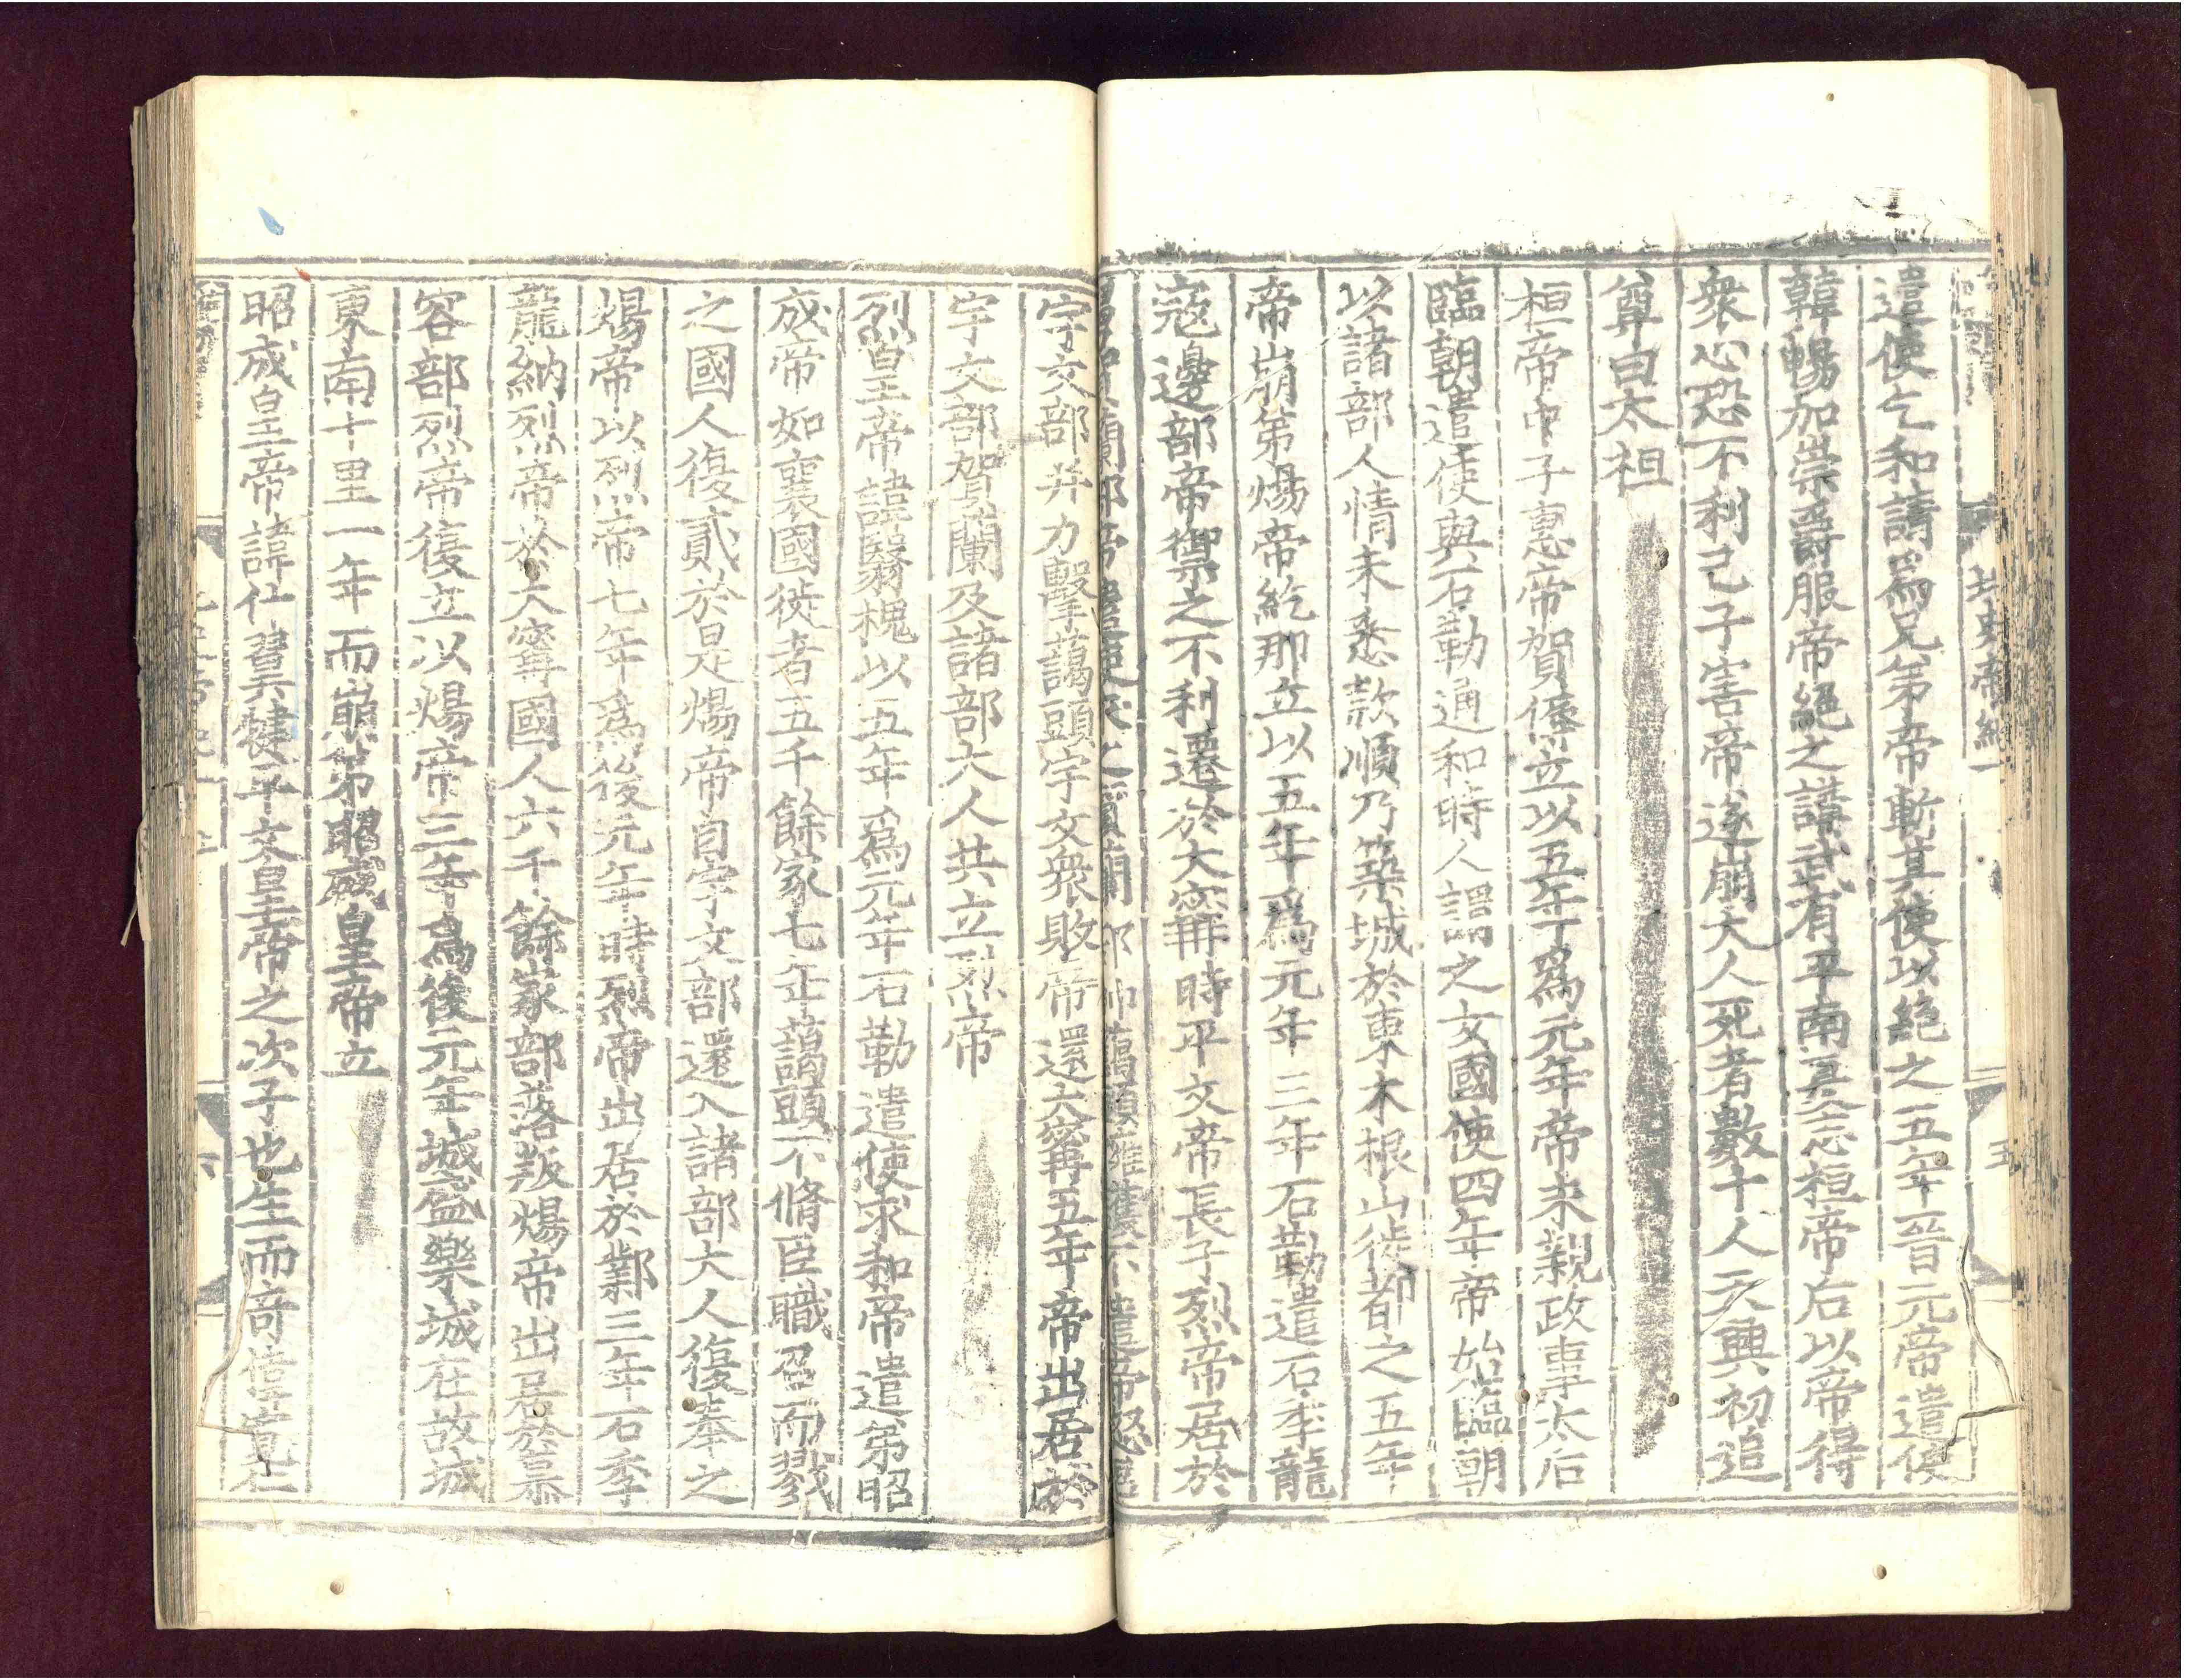 北史帝紀一
五
遣使乞和請爲兄弟帝斬其使以絕之五年晉元帝遣使
韓暢加崇爵服帝絕之講武有平南夏意桓帝后以帝得
衆心恐不利己子害帝遂崩大人死者數十人天興初追
尊曰太祖
桓帝中子惠帝賀傉立以五年爲元年帝未親政事太后
臨朝遣使與石勒通和時人謂之女國使四年帝始臨朝
以諸部人情未悉款順乃築城於東木根山徙都之五年
帝崩弟煬帝紇那立以五年爲元年三年石勒遣石季龍
寇邊部帝禦之不利遷於大寗時平文帝長子烈帝居於
賀蘭部帝遣使求之賀蘭部帥藹頭擁護不遣帝怒召
宇文部并力擊藹頭宇文衆敗帝還大寗五年帝出居於
宇文部賀蘭及諸部大人共立烈帝
烈皇帝諱翳槐以五年爲元年石勒遣使求和帝遣弟昭
成帝如襄國徙者五千餘家七年藹頭不脩臣職召而戮
之國人復貳於是煬帝自宇文部還入諸部大人復奉之
煬帝以烈帝七年爲後元年時烈帝出居於鄴三年石季
龍納烈帝於大寗國人六千餘家部落叛煬帝出居於慕
容部烈帝復立以煬帝三年爲後元年城盛樂城在故城
東南十里一年而崩弟昭成皇帝立
昭成皇帝諱什翼犍平文皇帝之次子也生而奇偉寬仁